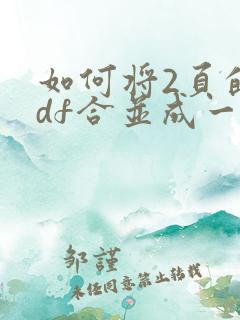 如何将2页的
df合并成一
邹謹
未经同意禁止转载